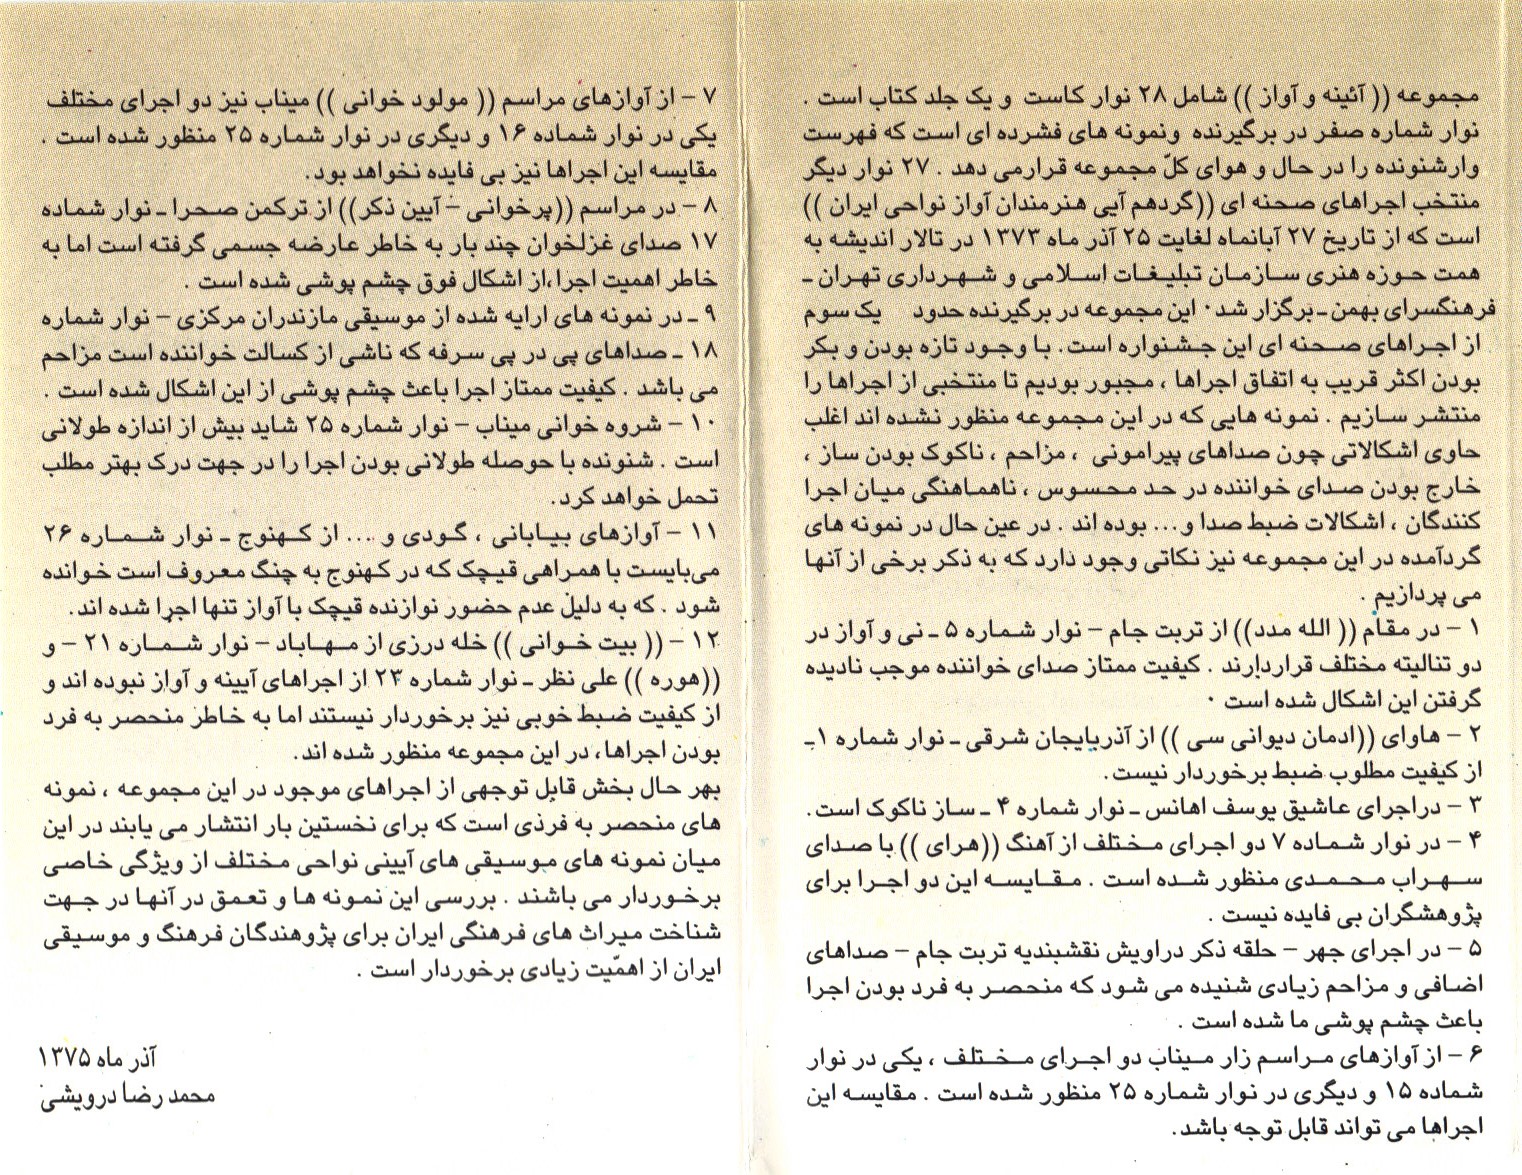 مجموعه (( آئینه و آواز )) شامل ۲۸ نوار کاست و یک جلد کتاب است .
نوار شماره صفر در برگیرنده ونمونه های فشرده ای است که فهرست
وارشنونده را در حال و هوای کلّ مجموعه قرارمی دهد . ۲۷ نوار دیگر
منتخب اجراهای صحنه ای ((گردهم آیی هنرمندان آواز نواحی ایران ))
است که از تاریخ ۲۷ آبانماه لغایت ۲۵ آذر ماه ۱۳۷۳ در تالار اندیشه به
همت حوزه هنری سازمان تبلیغات اسلامی و شهرداری تهران ـ
فرهنگسرای بهمن ـ برگزار شد۰ این مجموعه در برگیرنده حدود یک سوم
از اجراهای صحنه ای این جشنواره است. با وجود تازه بودن و بکر
بودن اکثر قریب به اتفاق اجراها ، مجبور بودیم تا منتخبی از اجراها را
منتشر سازیم . نمونه هایی که در این مجموعه منظور نشده اند اغلب
حاوی اشکالاتی چون صداهای پیرامونی ، مزاحم ، ناکوک بودن ساز ،
خارج بودن صدای خواننده در حد محسوس ، ناهماهنگی میان اجرا
کنندگان ، اشکالات ضبط صدا و... بوده اند . در عین حال در نمونه های
گردآمده در این مجموعه نیز نکاتی وجود دارد که به ذکر برخی از آنها
می پردازیم .
۱ – در مقام (( الله مدد)) از تربت جام – نوار شماره ۵ ـ نی و آواز در
دو تنالیته مختلف قراردارند . کیفیت ممتاز صدای خواننده موجب نادیده
گرفتن این اشکال شده است ۰
۲ – هاوای ((ادمان دیوانی سی )) از آذربایجان شرقی ـ نوار شماره ۱ـ
از کیفیت مطلوب ضبط برخوردار نیست.
۳ – دراجرای عاشیق یوسف اهانس ـ نوار شماره ۴ ـ ساز ناکوک است.
۴ – در نوار شماده ۷ دو اجرای مختلف از آهنگ ((هرای )) با صدای
سهراب محمدی منظور شده است . مقایسه این دو اجرا برای
پژوهشگران بی فایده نیست .
۵ – در اجرای جهر – حلقه ذکر دراویش نقشبندیه تربت جام – صداهای
اضافی و مزاحم زیادی شنیده می شود که منحصر به فرد بودن اجرا
باعث چشم پوشی ما شده است .
۶ – از آوازهای مراسم زار میناب دو اجرای مختلف ، یکی در نوار
شماده ۱۵ و دیگری در نوار شماره ۲۵ منظور شده است . مقایسه این
اجراها می تواند قابل توجه باشد.
۷ – از آوازهای مراسم (( مولود خوانی )) میناب نیز دو اجرای مختلف
یکی در نوار شماده ۱۶ و دیگری در نوار شماره ۲۵ منظور شده است .
مقایسه این اجراها نیز بی فایده نخواهد بود.
۸ – در مراسم ((پرخوانی – آیین ذکر)) از ترکمن صحرا ـ نوار شماده
۱۷ صدای غزلخوان چند بار به خاطر عارضه جسمی گرفته است اما به
خاطر اهمیت اجرا ،از اشکال فوق چشم پوشی شده است .
۹ ـ در نمونه های ارایه شده از موسیقی مازندران مرکزی – نوار شماره
۱۸ ـ صداهای پی در پی سرفه که ناشی از کسالت خواننده است مزاحم
می باشد . کیفیت ممتاز اجرا باعث چشم پوشی از این اشکال شده است .
۱۰ – شروه خوانی میناب – نوار شماره ۲۵ شاید بیش از اندازه طولانی
است . شنونده با حوصله طولانی بودن اجرا را در جهت درک بهتر مطلب
تحمل خواهد کرد.
۱۱ – آوازهای بیابانی ، گودی و ... از کهنوج ـ نوار شماره ۲۶
می‌بایست با همراهی قیچک که در کهنوج به چنگ معروف است خوانده
شود . که به دلیل عدم حضور نوازنده قیچک با آواز تنها اجرا شده اند.
۱۲ – (( بیت خوانی )) خله درزی از مهاباد – نوار شماره ۲۱ – و
((هوره )) علی نظر ـ نوار شماره ۲۳ از اجراهای آیینه و آواز نبوده اند و
از کیفیت ضبط خوبی نیز برخوردار نیستند اما به خاطر منحصر به فرد
بودن اجراها، در این مجموعه منظور شده اند.
بهر حال بخش قابل توجهی از اجراهای موجود در این مجموعه ، نمونه
های منحصر به فرذی است که برای نخستین بار انتشار می یابند در این
میان نمونه های موسیقی های آیینی نواحی مختلف از ویژگی خاصی
برخوردار می باشند . بررسی این نمونه ها و تعمق در آنها در جهت
شناخت میراث های فرهنگی ایران برای پژوهندگان فرهنگ و موسیقی
ایران از اهمّیت زیادی برخوردار است .
آذر ماه ۱۳۷۵
محمد رضا درویشی